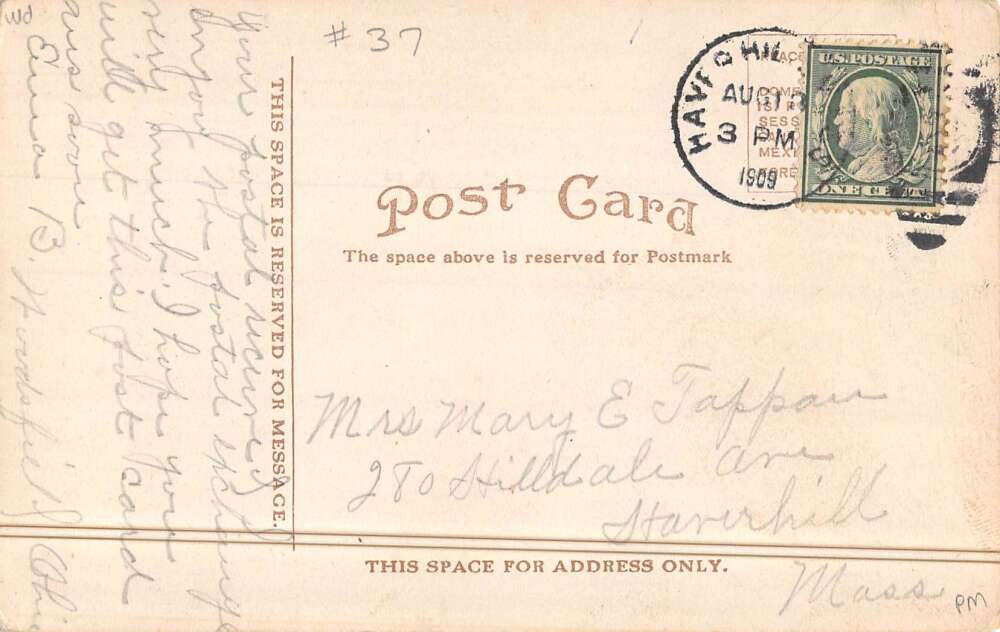 Wd
# 37
HAVERHIL
AUG 13
3 PM
1909
PLACE
DOME
IS R
SESS
CANA
MEXI
U.S. POSTAGE
ONE CENT
Post Card
The space above is reserved for Postmark
THIS SPACE IS RESERVED FOR MESSAGE.
Your postal received
Enjoy the postal exchange
very much. I hope you
will get this post card
Emma B. Woodsfield Ohio
Mrs Mary E Tappan
280 Hilldale Ave
Haverhill
Mass
THIS SPACE FOR ADDRESS ONLY.
PM